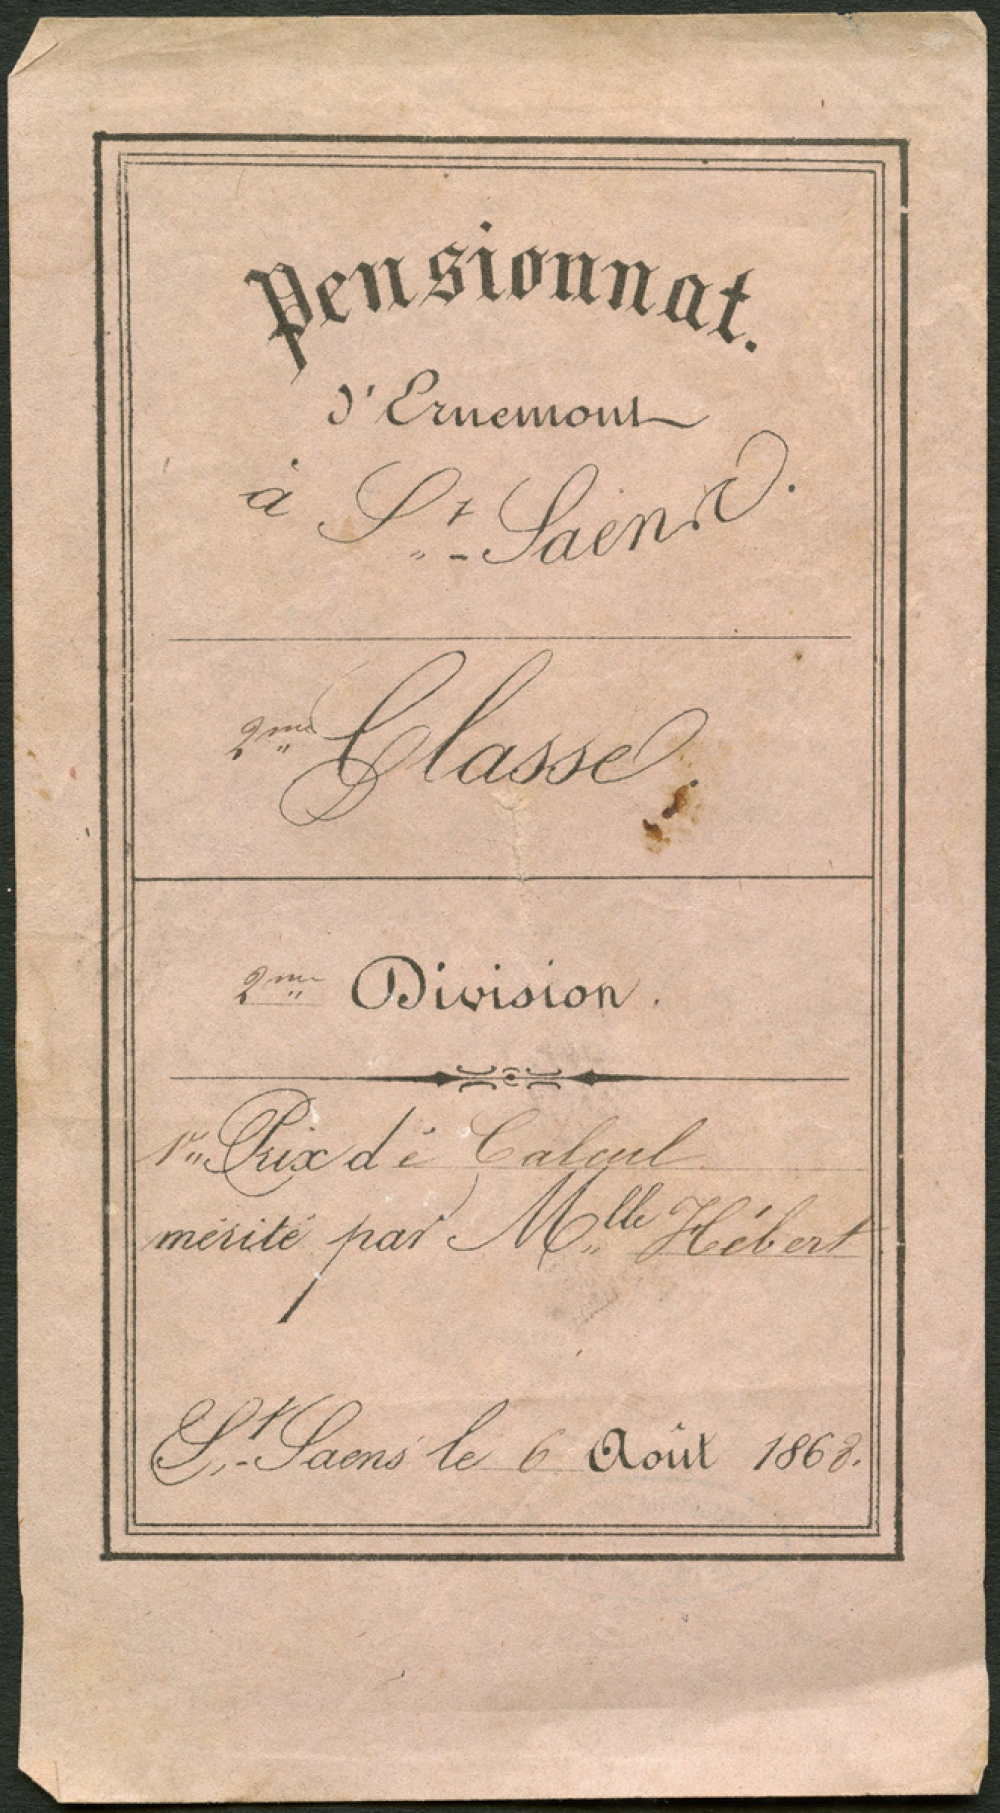 Pensionnat.
d'Ernemont
à St Saens.
2me Classe.
2me Division.
1er Prix de Calcul
mérité par Mlle Hébert
St Saens le 6 Août 1868.